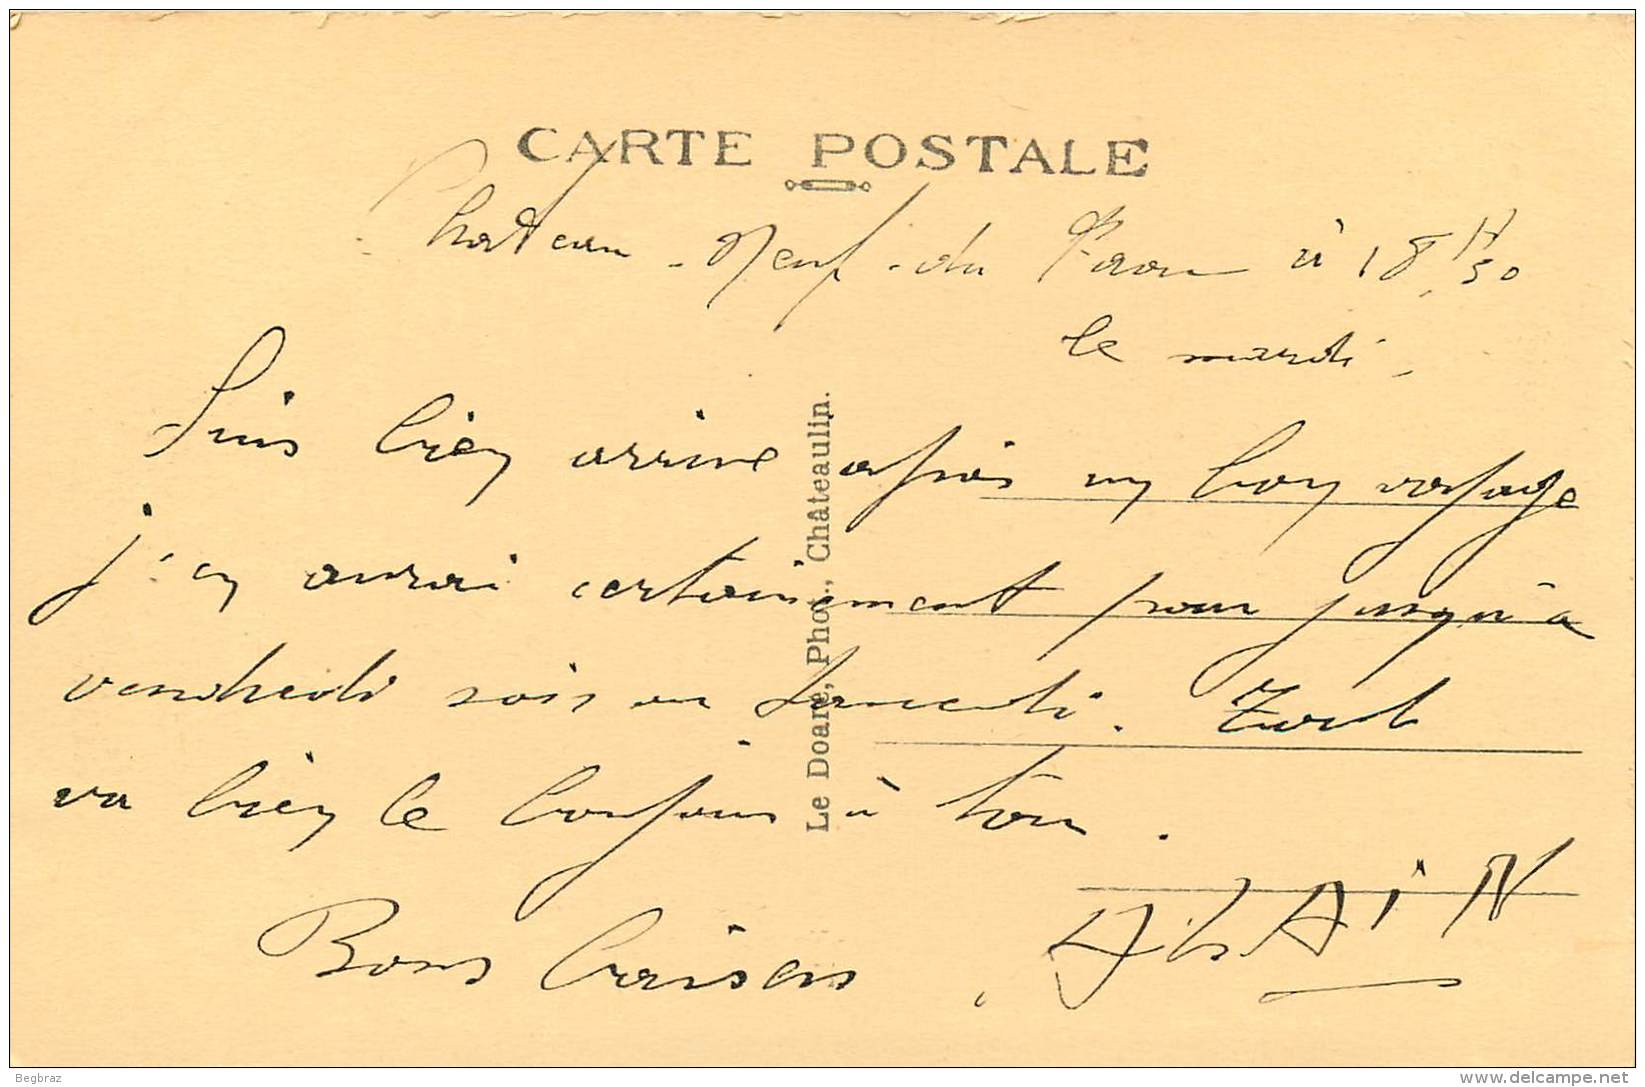 CARTE POSTALE
Chateau-Neuf-du Faou à 18H30
le mardi,
Suis bien arrivé après un bon voyage
j'en aurai certainement pour jusqu'à
vendredi soir ou samedi. Tout
va bien le bonjour à tous.
Bons baisers, ALAIN
Le Doaré, Phot., Châteaulin.
Begbraz
delcampe.net